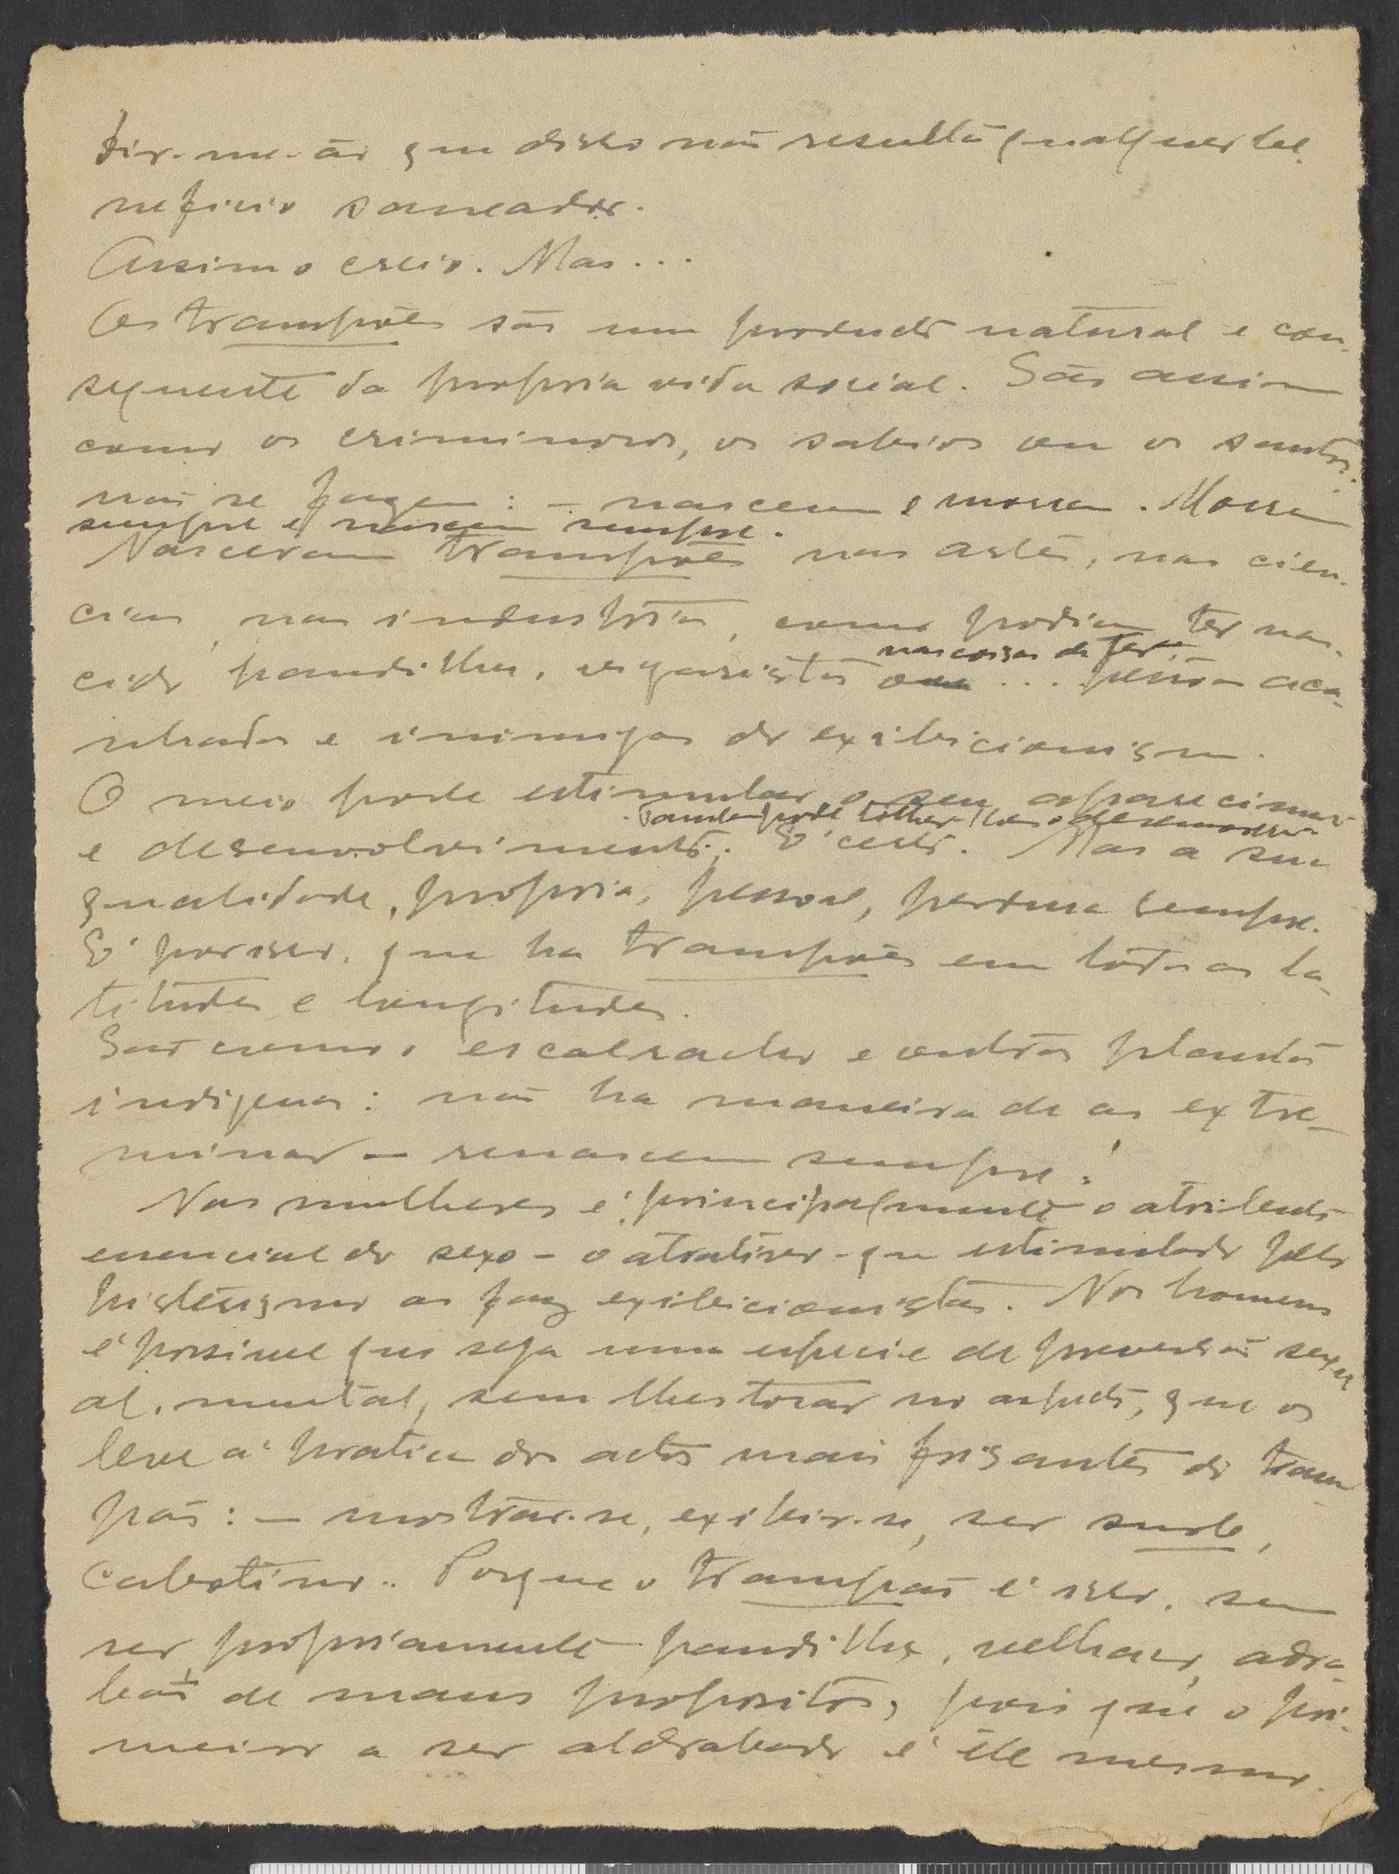 Dir-me-ão que disso não resulta qualquer be-
neficio saneador.
Assim o creio. Mas...
Os trampões são um producto natural e con-
sequente da propria vida social. São assim
como os criminosos, os sabios ou os santos:
não se fazem: — nascem e morrem. Morrem
sempre e nascem sempre.
Nasceram trampões nas artes, nas cien-
cias, nas industrias, como podiam ter nas-
nas coisas de
cido pandilhas, vigaristas ou ... pessoas aca-
nhadas e inimigas do exibicionismo.
O meio pode estimular o seu aparecimento
Tambem pode tolher-lhes o
e desenvolvimento. E' certo. Mas a sua
qualidade, propria, pessoal, perdura sempre.
E' por isso, que ha trampões em todas as la-
titudes e longitudes.
São como o escalracho e outras plantas
indigenas: não ha maneira de as exter-
minar — renascem sempre!
Nas mulheres é principalmente o atributo
essencial do sexo — o atrativo — que estimulado pelo
histerismo as faz exibicionistas. Nos homens
é possivel que seja uma especie de preversão sexu-
al, mental, sem lhes tocar no aspecto, que os
leve á pratica dos actos mais frisantes do tram-
pão: — mostrar-se, exibir-se, ser snob,
cabotino.. Porque o trampão é isso, sem
ser propriamente pandilha, velhaco, aldra-
bão de maus propositos, pois que o pri-
meiro a ser aldrabado é êle mesmo.